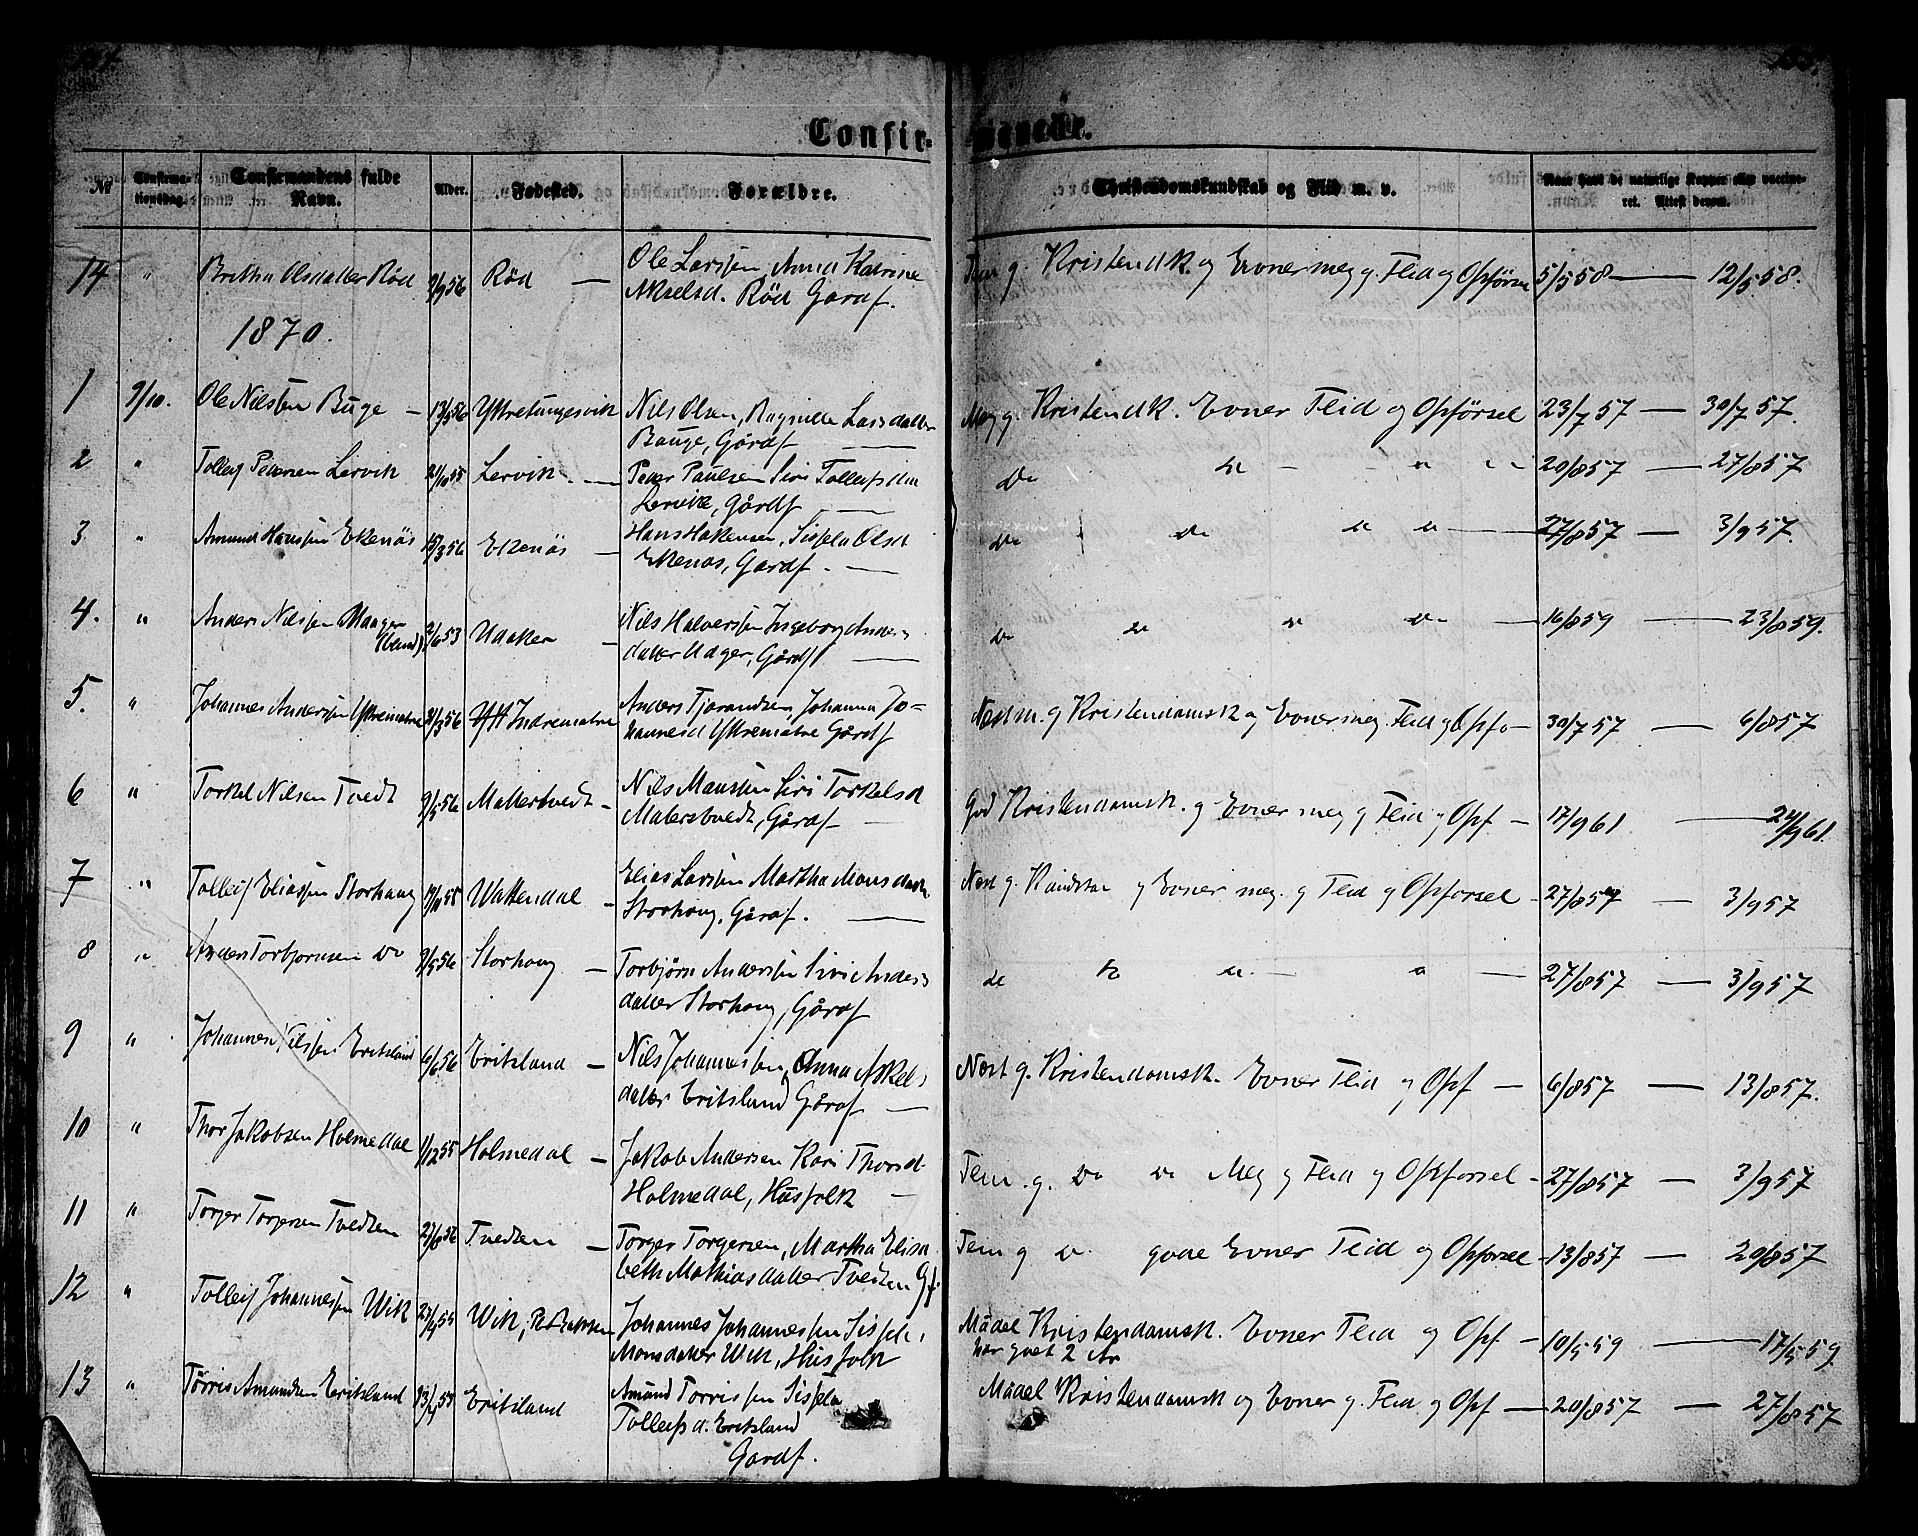 Confir-
manede.
No
Confirma-
tionsdag.
Confirmandens fulde
Navn.
Alder.
Fødested.
Forældre.
Christendomskundskab og Flid m. v.
Naar havt de naturlige Kopper eller vaccine-
ret. Attest derom.
14 " Britha Olsdatter Rød 9/9 56 Rød — Ole Larssen, Anna Katrine
Akselsd. Rød Gardf.
Tem g. Kristendk. og Evner meg g. Flid og Opførsel 5/5 58 — 12/5 58.
1870.
1 9/10. Ole Nilssen Buge — 13/3 56 Ytretungesvik Nils Olsen, Ragnilla Larsdatter
Bauge, Gårdf —
Meg g. Kristendk. Evner Flid og Opførsel 23/7 57 — 30/7 57.
2 " Tolleif Pedersen Lervik 21/10 55 Lervik — Peder Paulsen Siri Tolleifsdtr
Lervik, Gårdf —
Do Do — " " 20/8 57 — 27/8 57
3. " Amund Hanssen Ekenäs 15/3 56 Ekenäs — Hans Hakensen, Sissela Olsd
Ekenäs, Gardf. —
Do Do " " — 27/8 57 — 3/9 57.
4. " Anders Nilssen Uaager 2/6 53 Udaker — Nils Halversen Ingeborg Anders
datter Udager, Gårdf —
Do Do Do Do — 16/8 59 — 23/8 59.
5. " Johannes Anderssen Yttrematre 31/3 56 Ytt Indrematre Anders Tjerandsen, Johanna Jo-
hannesd Yttrematre Gårdf
Næst m. g Kristendomsk og Evner meg. Flid og Opfø — 30/7 57 — 6/8 57
6 " Torkel Nilsen Tvedt 9/5 56 Matertvedt — Nils Monssen Siri Torkelsd
Matersbvedt, Gårdf —
God Kristendomsk. g Evner meg g Flid og Opf — 17/9 61 — 24/9 61.
7 " Tolleif Eliassen Storhaug 19/11 55 Wattendal — Elias Larssen Martha Monsdatt
Storhaug, Gårdf. —
Næst g. Kundskab g Evner meg. g Flid og Opførsel — 27/8 57 — 3/9 57
8 " Anders Torbjørnsen Do 9/5 56 Storhaug — Torbjørn Anderssen Siri Anders
datter Storhaug, Gårdf
do Do " — " — 27/8 57 — 3/9 57
9 " Johannes Nilssen Eritsland 6/6 56 Eritsland — Nils Johannessen, Anna Askels
datter Eritsland Gårdf —
Næst g. Kristendomsk. Evner Flid og Opf — 6/8 57 — 13/8 57.
10 " Thor Jakobsen Holmedal 1/12 55 Holmedal — Jakob Andersen Kari Thorsd.
Holmedal, Husfolk —
Tem. g. Do Do Meg g Flid og Opførsel — 27/8 57 — 3/9 57
11 " Torger Torgersen Tvedten 27/8 56 Tvedten — Torger Torgersen, Martha Elisa
beth Mathiasdatter Tvedten Gf.
Tem g Do. gode Evner Flid og Opførsel — 13/8 57 — 20/8 57
12 " Tolleif Johannessen Wik 27/4 55 Wik, Johannes Johannessen Sissela
Monsdatter Wik, Husfolk
Mådel Kristendomsk. Evner Flid og Opf — 10/5 59 — 17/5 59.
har gaaet 2 År
13 " Tørris Amundsen Eritsland 23/4 55 Eritsland Amund Torrissen Sissela
Tolleifsd. Eritsland
Gardf.
Mådel Kristendomsk og Evner g. Flid og Opf — 20/8 57 — 27/8 57